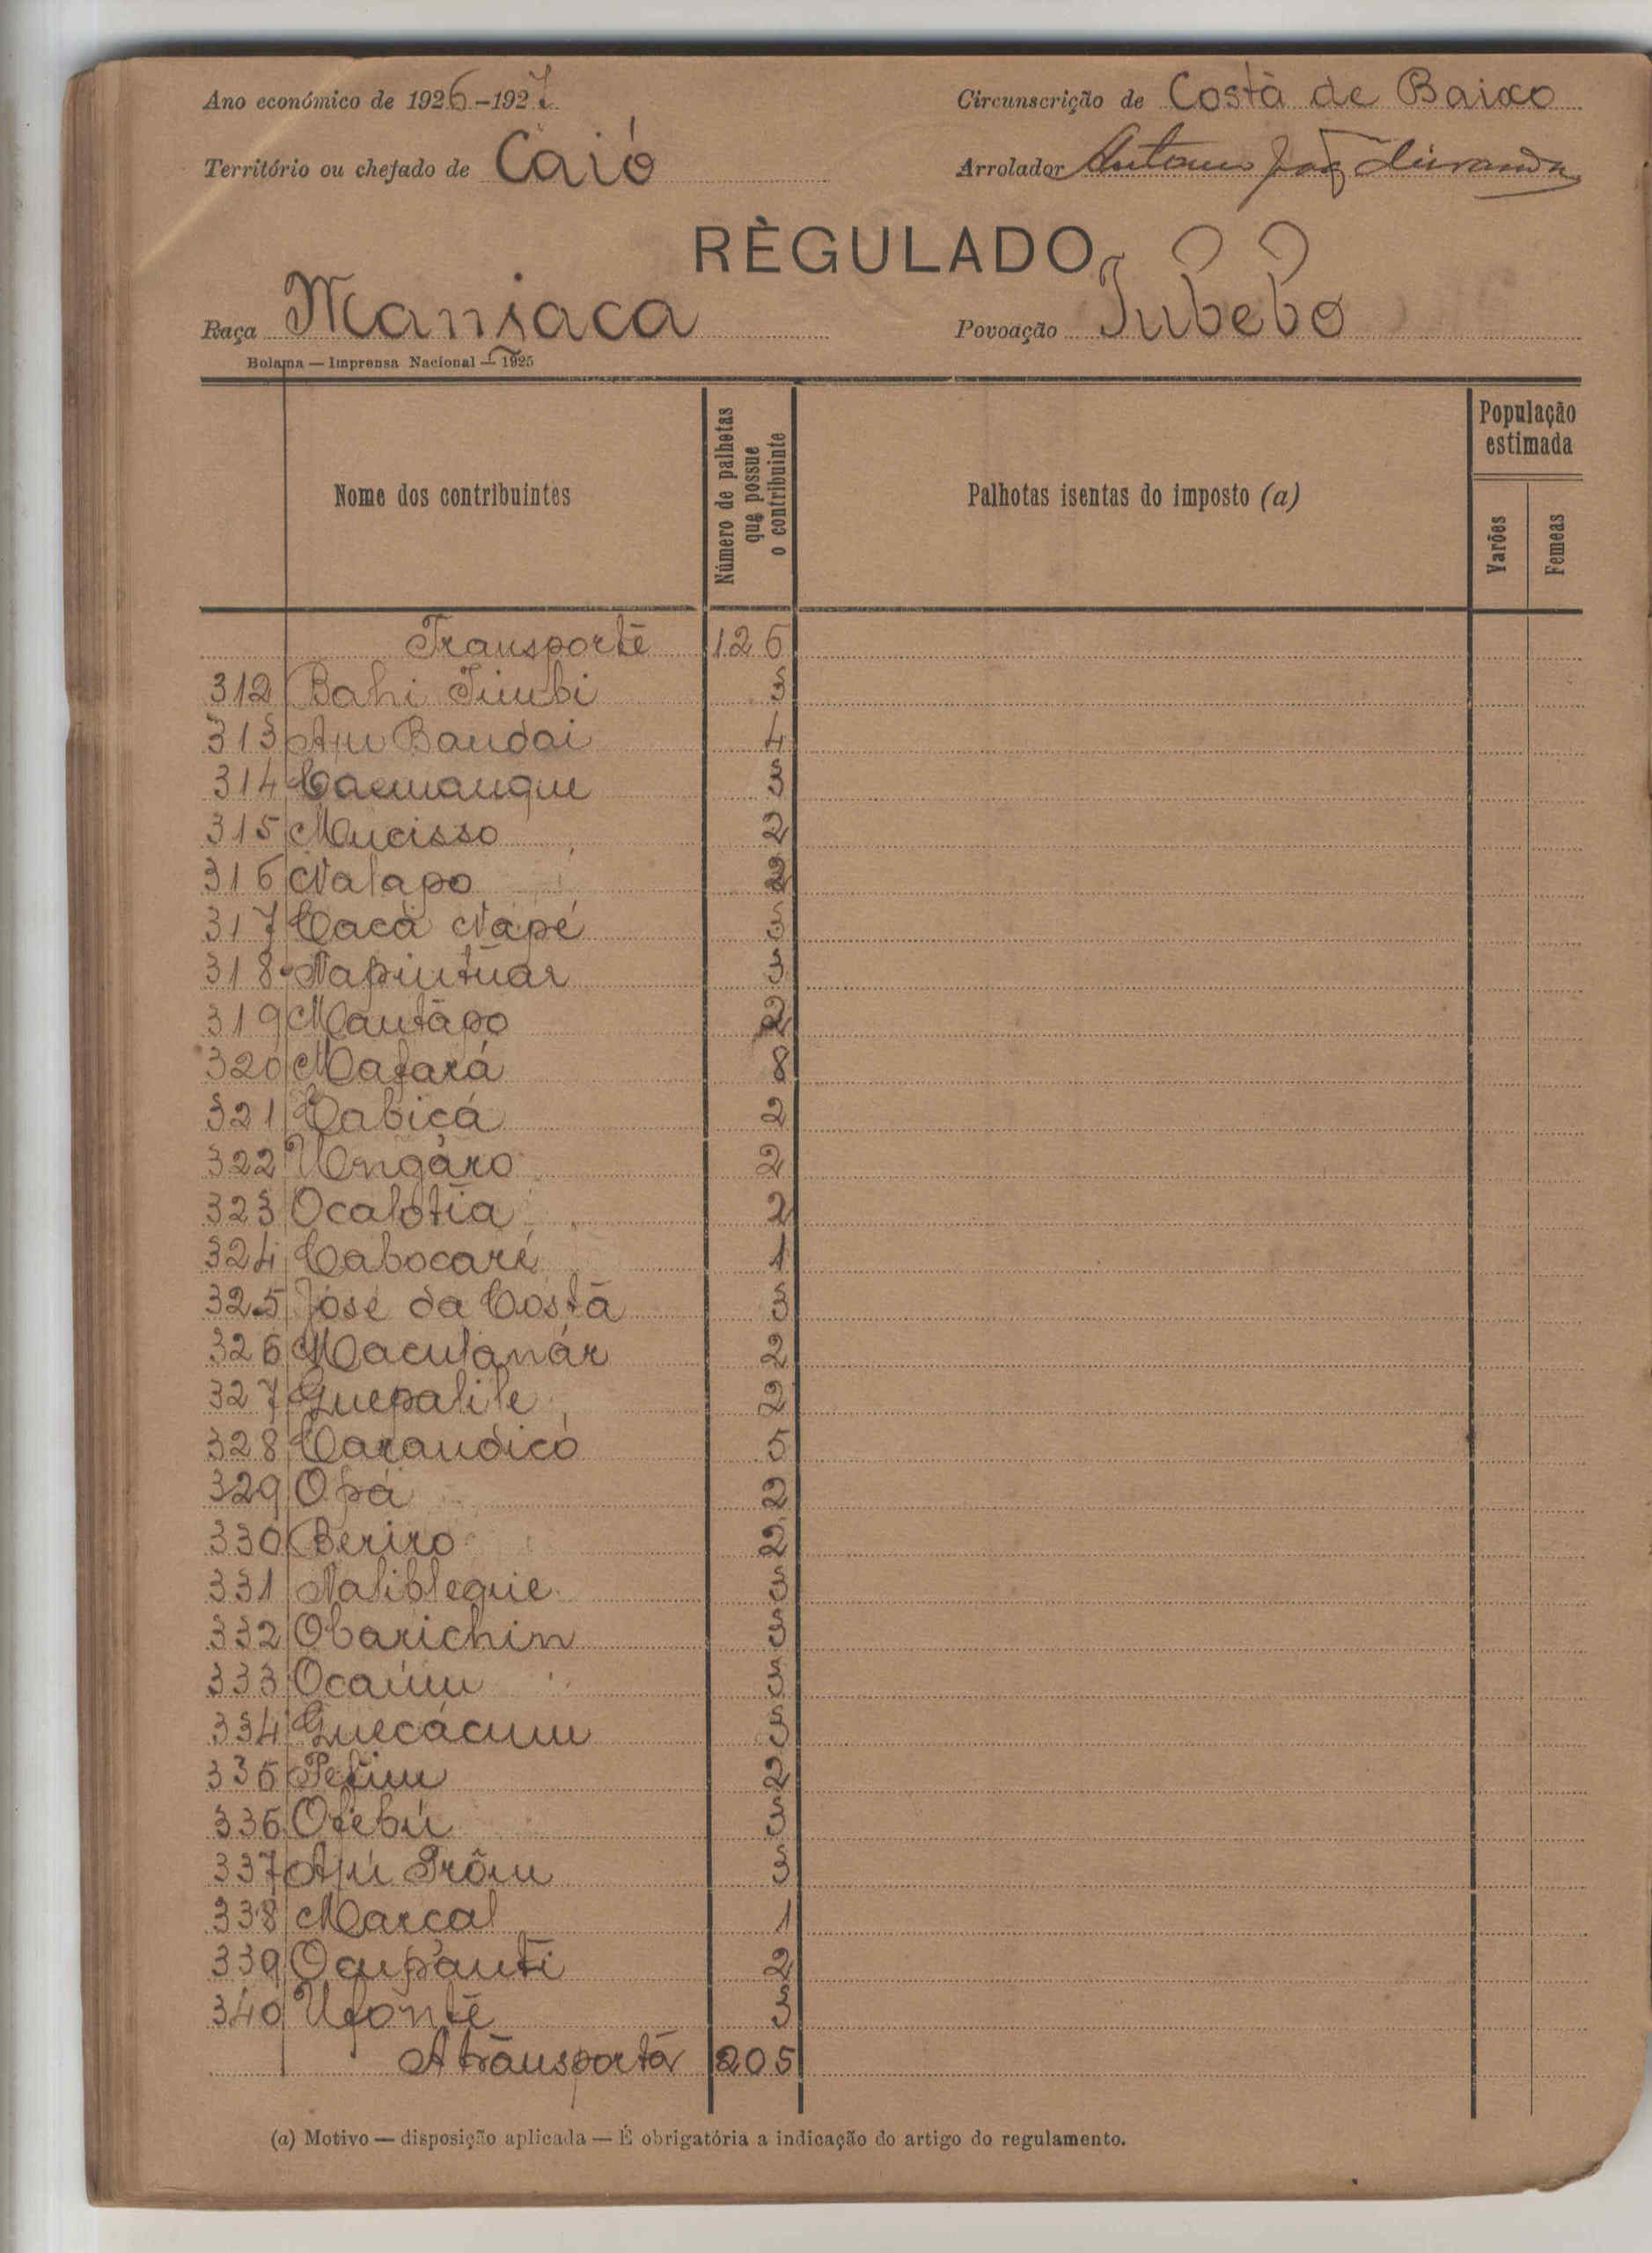 Ano económico de 1926-1927 Circunscrição de Costa de Baixo
Território ou chefado de Caió Arrolador Antonio
RÈGULADO
Raça Manjaca Povoação Jubebo
Bolama — Imprensa Nacional — 1925
Nome dos contribuintes Número de palhetas que possue o contribuinte Palhotas isentas do imposto (a) População estimada Varões Femeas
Transporte 126
312 Bahi 3
313 Baudai 4
314 Caemanque 3
315 Mucisso 2
316 Natapo 2
317 Cacá Napé 3
318 Napintuar 3
319 Mantapo 2
320 Mafará 8
321 Cabiçá 2
322 Ungáro 2
323 Ocalotia 2
324 Cabocaré 1
325 José da Costa 3
326 Maculanár 2
327 Guepalile 2
328 Carandicó 5
329 Opá 2
330 Beriro 2
331 Naliblequie 3
332 Obarichin 3
333 Ocaúm 3
334 Guecácum 3
335 2
336 Ofebú 3
337 3
338 Marcal 1
339 Ocupanti 2
340 Ufonte 3
A transportar 205
(a) Motivo — disposição aplicada — É obrigatória a indicação do artigo do regulamento.